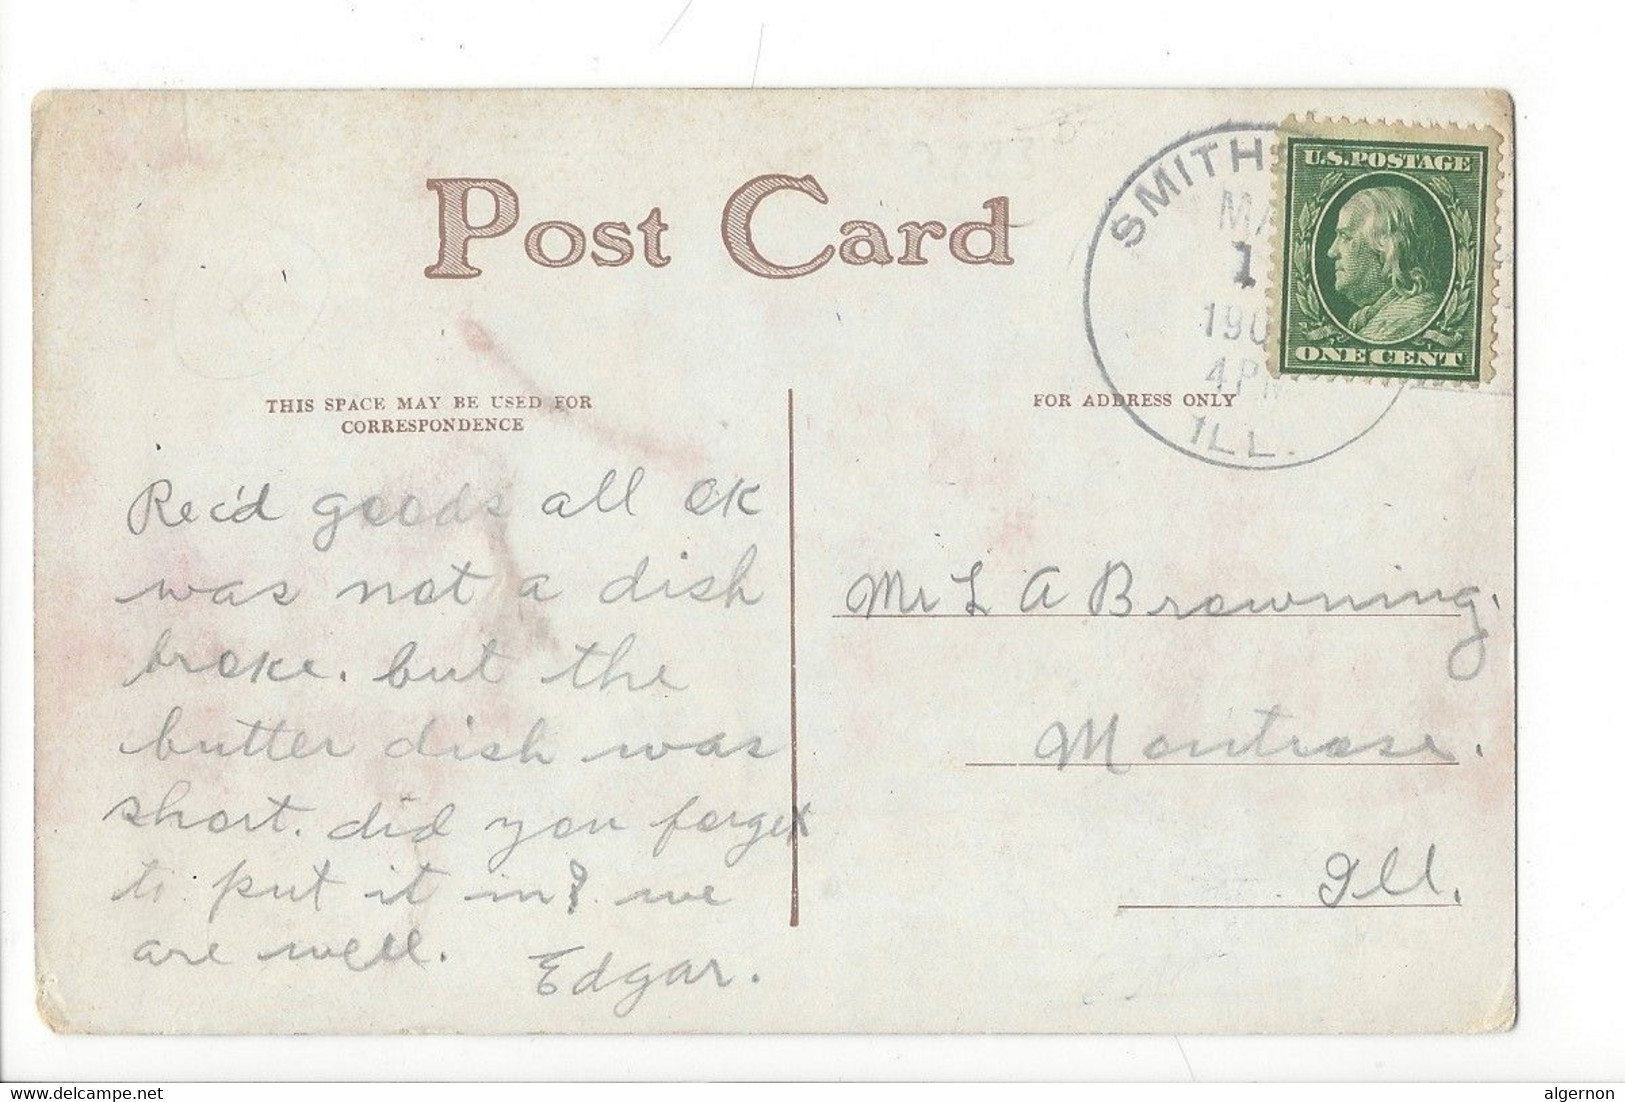 Post Card
SMITH
MA
1
190
4 P
ILL.
U.S. POSTAGE
ONE CENT
THIS SPACE MAY BE USED FOR
CORRESPONDENCE
FOR ADDRESS ONLY
Rec'd goods all OK
was not a dish
broke. but the
butter dish was
short. did you forget
to put it in? we
are well.
Edgar.
Mr L A Browning.
Montrose.
Ill.
www.delcampe.net
algernon